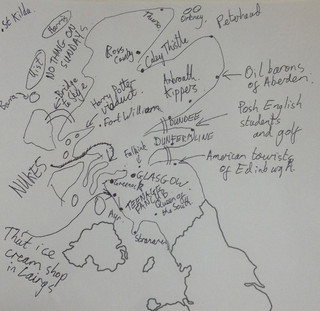 .St Kilda
Harris
NOTHING ON
SUNDAYS
Uist
Barra
Bridge
to Skye
Harry Potter
viaduct.
Fort William
Thurso
Orkney.
Peterhead
Ross
County
Caley Thistle
Arbroath
Kippers
Oil barons
of Aberdeen.
DUNDEE
DUNFERMLINE
Posh English
students
and golf
Falkirk
American tourists
of Edinburgh
NUKES
GLASGOW.
Greenock
TEENAGE
FANCLUB
Queen of
the South
Ayr.
Stranraer
That ice
cream shop
in Largs